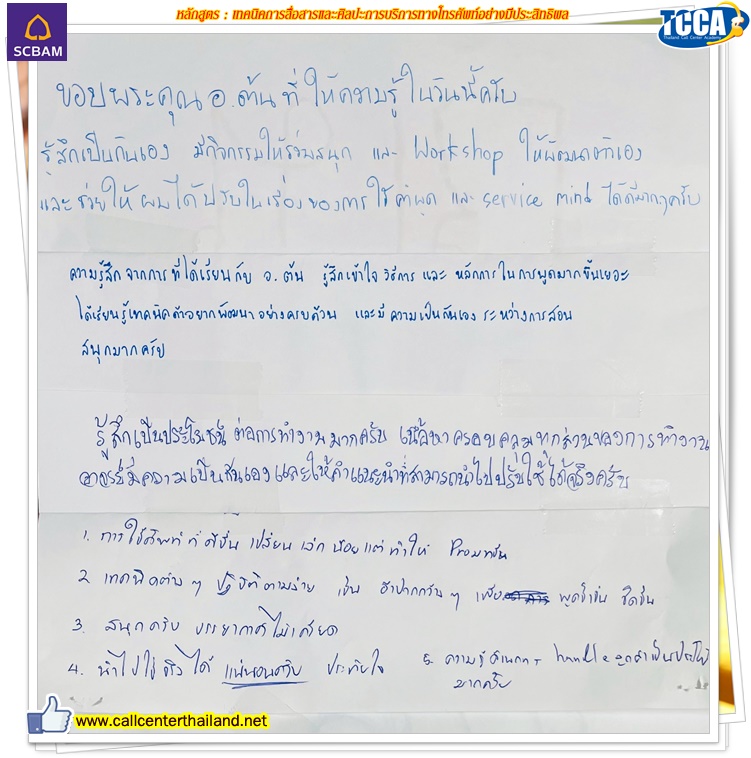 SCBAM
หลักสูตร : เทคนิคการสื่อสารและศิลปะการบริการทางโทรศัพท์อย่างมีประสิทธิผล
TCCA
Thailand Call Center Academy
ขอบพระคุณ อ.ต้น ที่ให้ความรู้ในวันนี้ครับ
รู้สึกเป็นกันเอง มีกิจกรรมให้ร่วมสนุก และ Workshop ให้พัฒนาตัวเอง
และช่วยให้ผมได้ปรับในเรื่องของการใช้คำพูด และ service mind ได้ดีมากๆครับ
ความรู้สึกจากการที่ได้เรียนกับ อ.ต้น รู้สึกเข้าใจ วิธีการ และ หลักการในการพูดมากขึ้นเยอะ
ได้เรียนรู้เทคนิคที่อยากพัฒนาอย่างครบถ้วน และมีความเป็นกันเองระหว่างการสอน
สนุกมากครับ
รู้สึกเป็นประโยชน์ ต่อการทำงานมากครับ เนื้อหาครอบคลุมทุกส่วนของการทำงาน
อาจารย์มีความเป็นกันเองและให้คำแนะนำที่สามารถนำไปปรับใช้ได้จริงครับ
1. การใช้ศัพท์ที่ดีขึ้น เปลี่ยนเล็กน้อยแต่ทำให้
2. เทคนิคต่างๆ ปฏิบัติตามง่าย เช่น พูดช้าขึ้น ชัดขึ้น
3. สนุกครับ บรรยากาศไม่เครียด
4. นำไปใช้จริงได้ แน่นอนครับ ประทับใจ
5. ความรู้ด้านการ handle ลูกค้าเป็น
มากครับ
www.callcenterthailand.net